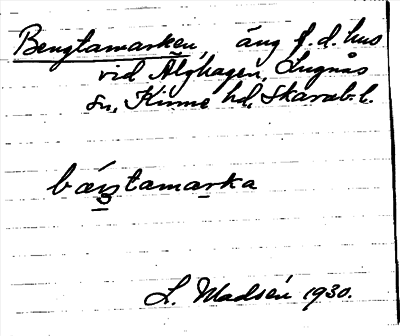 Bengtamarken, äng f. d. hus
vid Älghagen, Lugnås
sn, Kinne hd, Skarab. l.
bæŋtamarka
L. Madsén 1930.